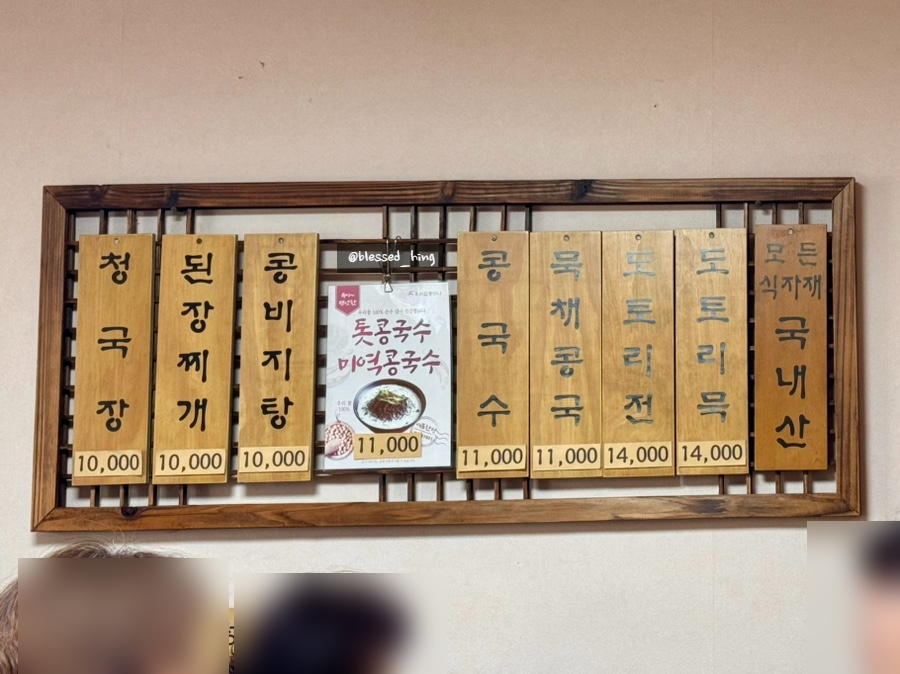 청국장
10,000
된장찌개
10,000
콩비지탕
10,000
@blessed_hing
톳콩국수
미역콩국수
우리 콩
100%
11,000
콩국수
11,000
묵채콩국
11,000
도토리전
14,000
도토리묵
14,000
모든
식자재
국내산